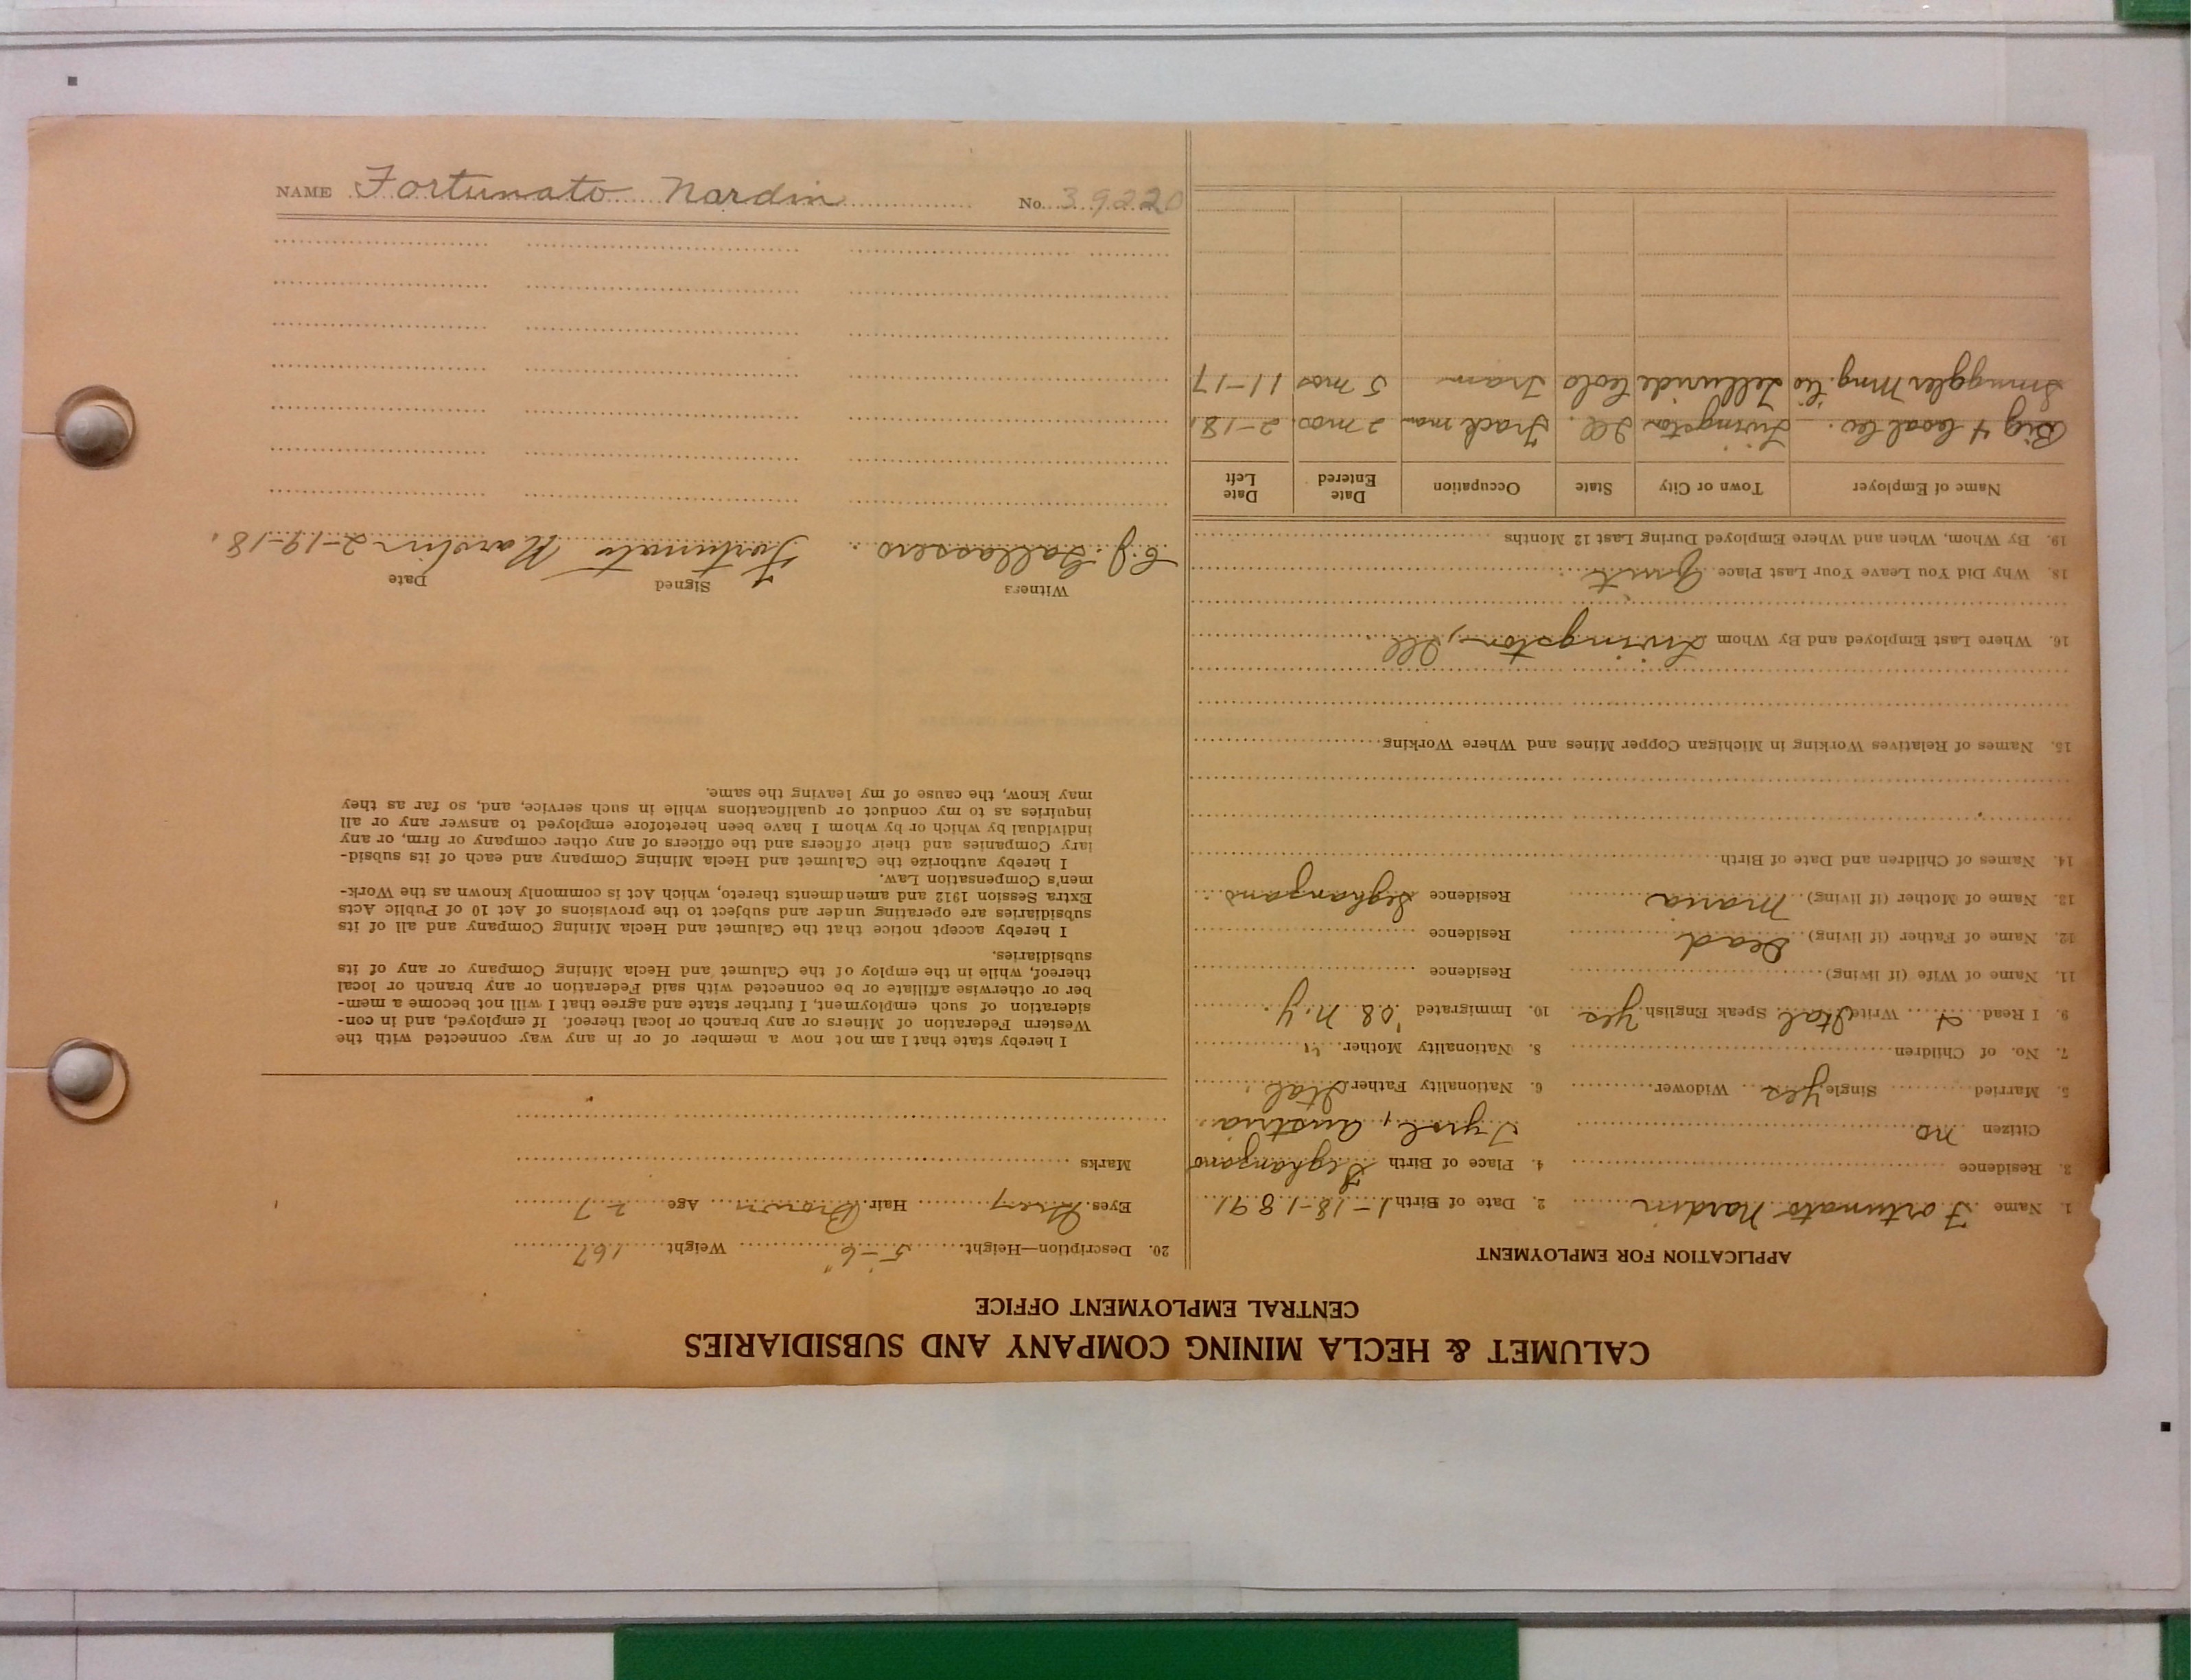 CALUMET & HECLA MINING COMPANY AND SUBSIDIARIES
CENTRAL EMPLOYMENT OFFICE
APPLICATION FOR EMPLOYMENT
1. Name Fortunato Nardin 2. Date of Birth 1-18-1891
3. Residence 4. Place of Birth Seghanzano
Citizen no Tyrol, Austria.
5. Married Single Yes Widower 6. Nationality Father Ital
7. No. of Children 8. Nationality Mother "
9. I Read & Write Ital, Speak English Yes 10. Immigrated '08 N.Y.
11. Name of Wife (if living) Residence
12. Name of Father (if living) Dead Residence
13. Name of Mother (if living) Maria Residence Seghanzano
14. Names of Children and Date of Birth
15. Names of Relatives Working in Michigan Copper Mines and Where Working
16. Where Last Employed and By Whom Livingston, Ill
18. Why Did You Leave Your Last Place Quit
19. By Whom, When and Where Employed During Last 12 Months
Name of Employer Town or City State Occupation Date Entered Date Left
Big 4 Coal Co. Livingston Ill. Track man 2 mos. 2-18.
Smuggler Mng. Co Telluride Colo Tram 5 mos 11-17
20. Description—Height 5'-6" Weight 167
Eyes Gray Hair Brown Age 27
Marks
I hereby state that I am not now a member of or in any way connected with the
Western Federation of Miners or any branch or local thereof. If employed, and in con-
sideration of such employment, I further state and agree that I will not become a mem-
ber or otherwise affiliate or be connected with said Federation or any branch or local
thereof, while in the employ of the Calumet and Hecla Mining Company or any of its
subsidiaries.
I hereby accept notice that the Calumet and Hecla Mining Company and all of its
subsidiaries are operating under and subject to the provisions of Act 10 of Public Acts
Extra Session 1912 and amendments thereto, which Act is commonly known as the Work-
men's Compensation Law.
I hereby authorize the Calumet and Hecla Mining Company and each of its subsid-
iary Companies and their officers and the officers of any other company or firm, or any
individual by which or by whom I have been heretofore employed to answer any or all
inquiries as to my conduct or qualifications while in such service, and, so far as they
may know, the cause of my leaving the same.
Witness Signed Date
C.J. Gallassero Fortunato Nardin 2-19-18.
NAME Fortunato Nardin No. 39220